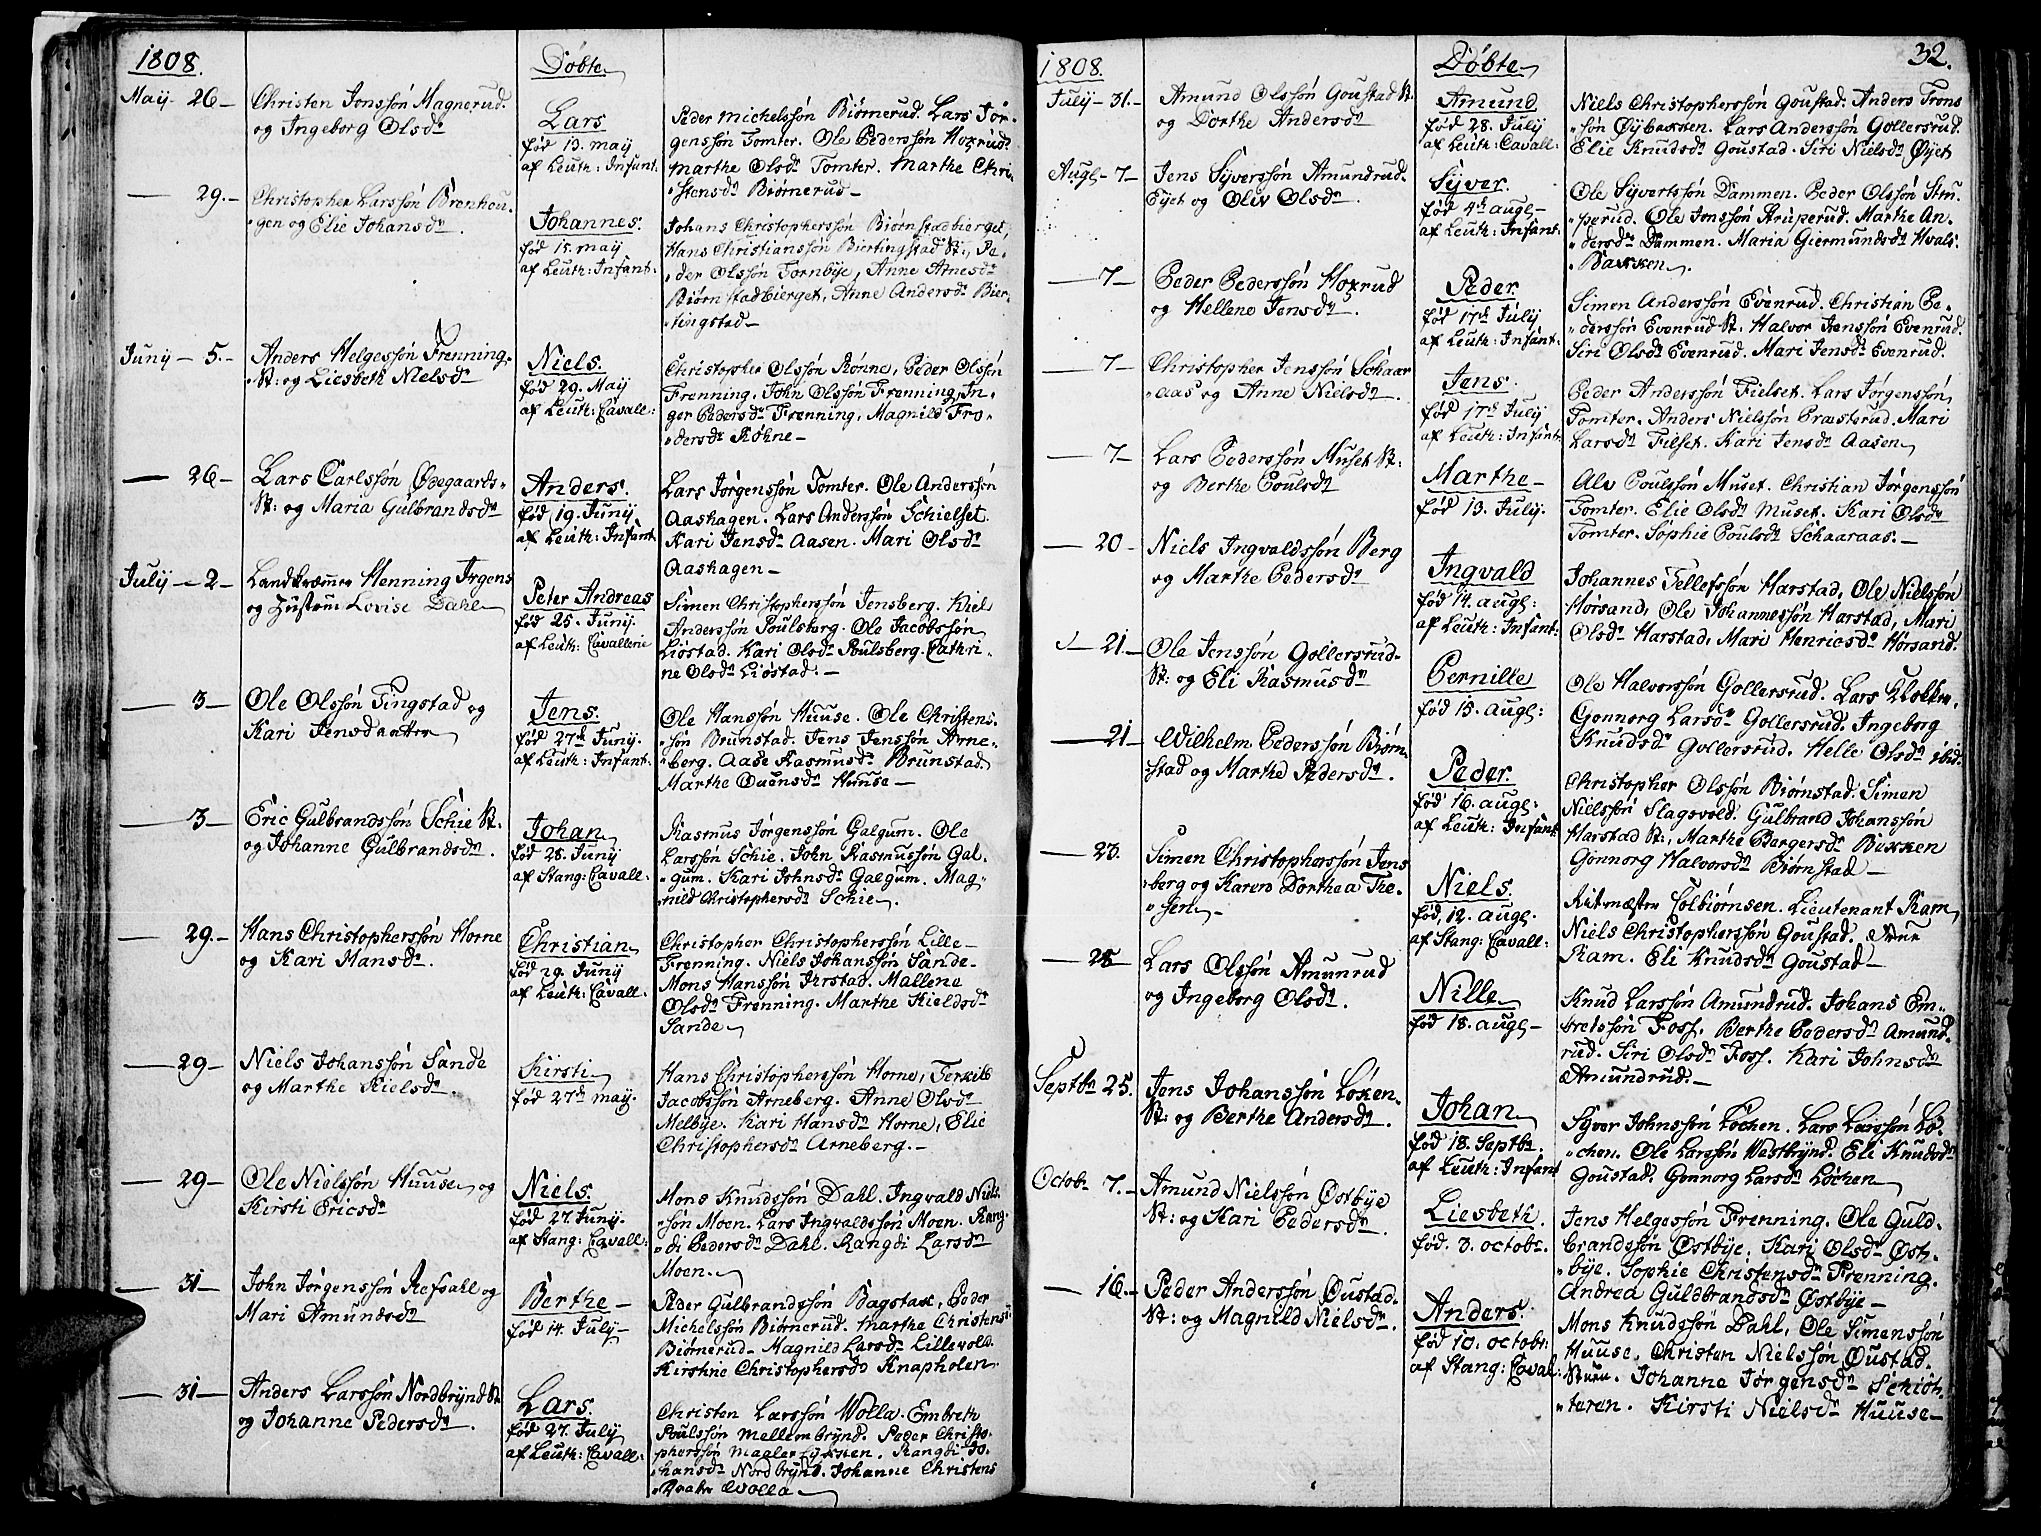 1808.
Døbte
May 26 — Christen Jonssøn Magnerud.
og Ingeborg Olsdr
Lars
fød 13. maij
af Leuth: Infant.
Peder Michelssøn Biørnerud. Lars Jør-
genssøn Tomter. Ole Pederssøn Hoxrud
Marthe Olsdr Tomter. Marthe Chri-
stensdr Biørnerud —
— 29. — Christopher Larssøn Brenhau-
gen og Elie Johansdr.
Johannes.
fød 15. maij
af Leuth: Infant:
Johans Christopherssøn Biørnstadbierget,
Hans Christianssøn Biertingstad St:, Pe-
der Olssøn Tornbye, Anne Arnesdr
Biørnstadbierget, Anne Andersdr Bier-
tingstad —
Juny — 5. — Anders Helgessøn Frenning-
St: og Liesbeth Nielsdr
Niels.
fød 29. Maij
af Leuth: Cavall:
Christopher Olssøn Rønne, Peder Olssøn
Frenning. John Olssøn Frenning, In-
ger Pedersdr Frenning, Magnild Fro-
dersdr Røhne —
— 26 — Lars Carlssøn Ødegaards-
St: og Maria Gulbrandsdr
Anders.
fød 19. Juny.
af Leuth: Infant
Lars Jørgenssøn Tomter. Ole Anderssøn
Aashagen. Lars Anderssøn Schielset.
Kari Jensdr Aasen. Mari Olsdr
Aashagen —
July — 2 — Landkræmmer Henning Irgens
og Hustrue Lovise Dahl
Peter Andreas
fød 25. Juny.
af Leuth: Cavallerie
Simen Christopherssøn Jensberg. Kiel
Anderssøn Poulsberg. Ole Jacobssøn
Liøstad. Kari Olsdr Poulsberg. Cathri-
ne Olsdr Liøstad. —
— 3 — Ole Olssøn Tingstad og
Kari Jensdaatter
Jens.
fød 27de Juny.
af Leuth: Infant.
Ole Hanssøn Huuse. Ole Christens-
søn Brunstad. Jens Jenssøn Arne-
berg. Aase Rasmusdr Brunstad
Marthe Ouensdr Huuse —
— 3 — Eric Gulbrandssøn Schie St:
og Johanne Gulbrandsdr.
Johan
fød 28. Juny
af Stang: Cavall:
Rasmus Jørgenssøn Galgum. Ole
Larssøn Schie. John Rasmussøn Gal-
gum. Kari Johnsdr Galgum. Mag-
nild Christophersdr Schie.
— 29. — Hans Christopherssøn Horne
og Kari Hansdr.
Christian
fød 29. Juny
af Leuth: Cavall:
Christopher Christopherssøn Lille-
Frenning. Niels Johanssøn Sande-
Mons Hanssøn Jirstad. Mallene
Olsdr Frenning. Marthe Kieldsdr
Sande
— 29 — Niels Johanssøn Sande
og Marthe Kielsdr.
Kirsti
fød 27de may.
Hans Christopherssøn Horne, Terkild
Jacobssøn Arneberg. Anne Olsdr
Melbye. Kari Hansdr Horne, Elie
Christophersdr Arneberg. —
— 29 — Ole Nielssøn Huuse og
Kirsti Ericsdr
Niels.
fød 27. Juny.
af Stang: Cavall:
Mons Knudssøn Dahl. Ingvald Niels-
søn Moen. Lars Ingvaldssøn Moen. Rang-
di Pedersdr Dahl. Rangdi Larsdr
Moen.
— 31 — John Jørgenssøn Refsahl og
Mari Amundsdr
Berthe —
fød 14. July —
Peder Gulbrandssøn Bagstax, Peder
Michelssøn Biørnerud. Marthe Christensdr
Biørnerud — Magnild Larsdr Lillevold.
Kirstine Christophersdr Knapholen
— 31 — Anders Larssøn Nordbrynd St
og Johanne Pedersdr.
Lars.
fød 27. July
af Leuth: Cavall:
Christen Larssøn Wolla. Embreth
Poulssøn Mellembrynd. Peder Christo-
pherssøn Magler Eyckxen. Rangdi Jo-
hansdr Nordbrynd. Johanne Christens
Daatter Wolla
32.
1808.
Døbte
July — 31. — Amund Olssøn Goustad St.
og Dorthe Andersdr
Amund
fød 28. July
af Leuth: Cavall:
Niels Christopherssøn Goustad. Anders Trons
søn Øybaxken. Lars Anderssøn Gollersrud.
Elie Knudsdr Goustad. Siri Nielsdr Øyet
Augl — 7 — Jens Syverssøn Amundrud-
Eyet og Oliv Olsdr.
Syver.
fød 4de augl —
af Leuth: Infant.
Ole Syvertssøn Dammen. Peder Olssøn Stru-
perud. Ole Jonssøn Struperud. Marthe An-
dersdr Dammen. Maria Giermundsdr Hvals-
Baxken.
— 7 — Peder Pederssøn Hoxrud
og Hellene Jensdr.
Peder
fød 17de July
af Leuth: Infant:
Simen Anderssøn Evenrud. Christian Pe-
derssøn Evenrud St: Halvor Jenssøn Evenrud.
Siri Olsdr Evenrud. Mari Jensdr Evenrud.
— 7 — Christopher Jenssøn Schaar
aas og Anne Nielsdr.
Jens.
fød 17de July
af Leuth: Infant.
Peder Anderssøn Fielset. Lars Jørgenssøn
Tomter. Anders Nielssøn Præsterud. Mari
Larsdr Filset. Kari Jensdr Aasen
— 7 — Lars Pederssøn Muset St:
og Berthe Poulsdr
Marthe —
fød 13. July.
Alv Poulssøn Muset. Christian Jørgenssøn
Tomter. Elie Olsdr Muset. Kari Olsdr
Tomter. Sophie Poulsdr Schaaraas. —
— 20 — Niels Ingvaldssøn Berg
og Marthe Pedersdr
Ingvald
fød 14. augl:
af Leuth: Infant:
Johannes Tellefssøn Harstad, Ole Nielssøn
Hørsand, Ole Johannessøn Harstad, Mari
Olsdr Harstad. Mari Henricsdr Hørsand.
— 21. — Ole Jenssøn Gollersrud-
St: og Eli Rasmusdr
Pernille
fød 15. augl:
Ole Halvorssøn Gollersrud. Lars
Gonnorg Larsdr Gollersrud. Ingeborg
Knudsdr Gollersrud. Helle Olsdr ibid.
— 21 — Wilhelm Pederssøn Biørn-
stad og Marthe Pedersdr.
Peder.
fød 16. augl:
af Leuth: Infant
Christopher Olssøn Biørnstad. Simen
Nielssøn Slagsvold. Gulbrand Johanssøn
Harstad St:, Marthe Bergersdr Bixken
Gonnorg Halvorsdr Biørnstad —
— 23. Simen Christopherssøn Jens
berg og Karen Dorthea The-
sen —
Niels.
fød, 12. augl.
af Stang: Cavall:
Ritmæster Colbiørnsen. Lieutenant Ram
Niels Christopherssøn Goustad. Frue
Ram. Eli Knudsdr Goustad —
— 28 — Lars Olssøn Amunrud
og Ingeborg Olsdr.
Nille
fød 18. augl —
Knud Larssøn Amundrud. Johans Em-
bretssøn Foss. Berthe Pedersdr Amund-
rud. Siri Olsdr Foss. Kari Johnsdr
Amundrud. —
Septbr 25. Jens Johanssøn Løken-
St: og Berthe Andersdr.
Johan
fød 18. Septbr:
af Leuth: Infant
Syver Johnssøn Løchen. Lars Larssøn Lø-
chen. Ole Larssøn Westbrynd. Eli Knudsdr
Goustad. Gonnorg Larsdr Løchen
Octobr 7. — Amund Nielssøn Østbye
St: og Kari Pedersdr.
Liesbeth.
fød. 3. octobr.
Jens Helgessøn Frenning. Ole Guld-
brandssøn Østbye. Kari Olsdr Øst-
bye. Sophie Christensdr Frenning.
Andrea Guldbrandsdr Østbye —
— 16. — Peder Anderssøn Oustad-
St: og Magnild Nielsdr.
Anders.
fød 10. octobr:
af Stang: Caval:
Mons Knudssøn Dahl, Ole Simenssøn
Huuse, Christen Nielssøn Oustad-
Stuen. Johanne Jørgensdr Schiøt-
teren. Kirsti Nielsdr Huuse —